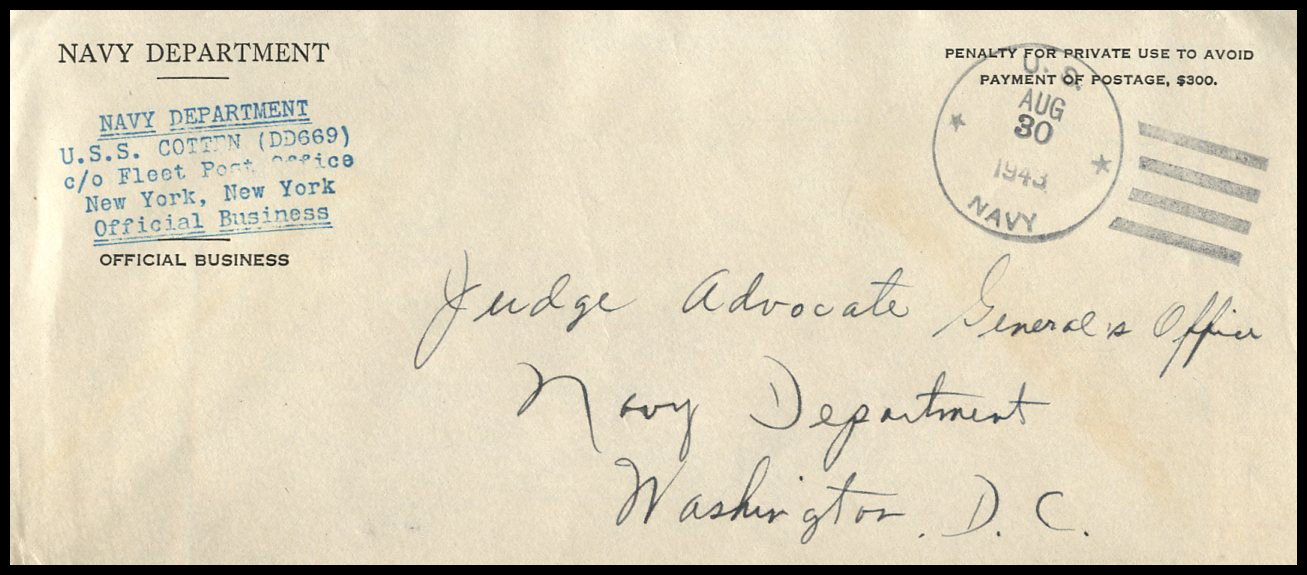 NAVY DEPARTMENT
NAVY DEPARTMENT
U.S.S. COTTEN (DD669)
c/o Fleet Post Office
New York, New York
Official Business
OFFICIAL BUSINESS
PENALTY FOR PRIVATE USE TO AVOID
PAYMENT OF POSTAGE, $300.
U. S.
AUG
30
1943
NAVY
Judge Advocate General's Office
Navy Department
Washington, D. C.